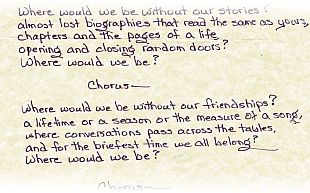 Where would we be without our stories?
almost lost biographies that read the same as yours,
chapters and the pages of a life
opening and closing random doors?
Where would we be?
Chorus—
Where would we be without our friendships?
a lifetime or a season or the measure of a song,
where conversations pass across the tables,
and for the briefest time we all belong?
Where would we be?
Chorus—